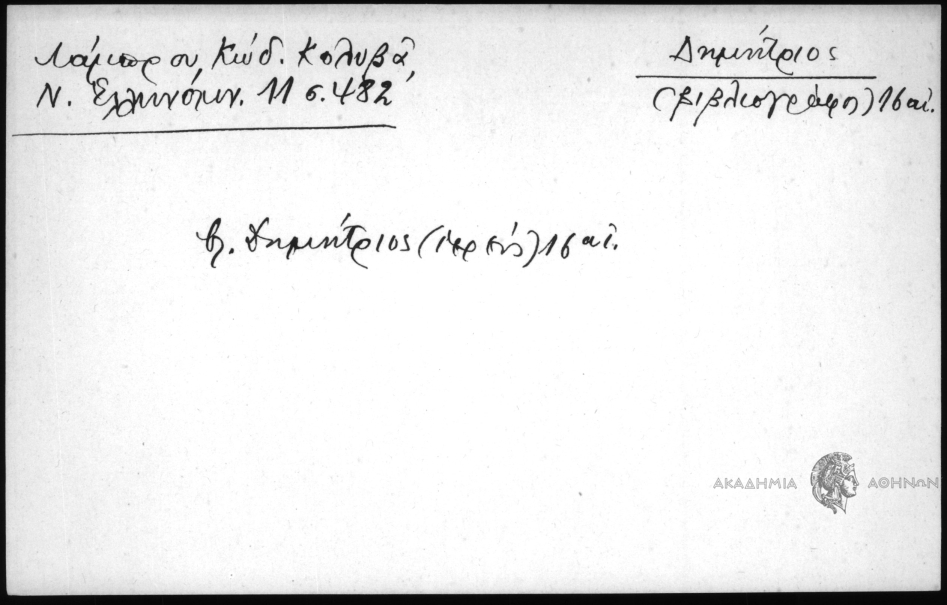 Λάμπρου Κώδ. Κολυβᾶ
Ν. Ἑλληνόμν. 11 σ. 482
Δημήτριος
(βιβλιογράφος) 16 αἰ.
βλ. Δημήτριος (ἱερεύς) 16 αἰ.
ΑΚΑΔΗΜΙΑ ΑΘΗΝΩΝ